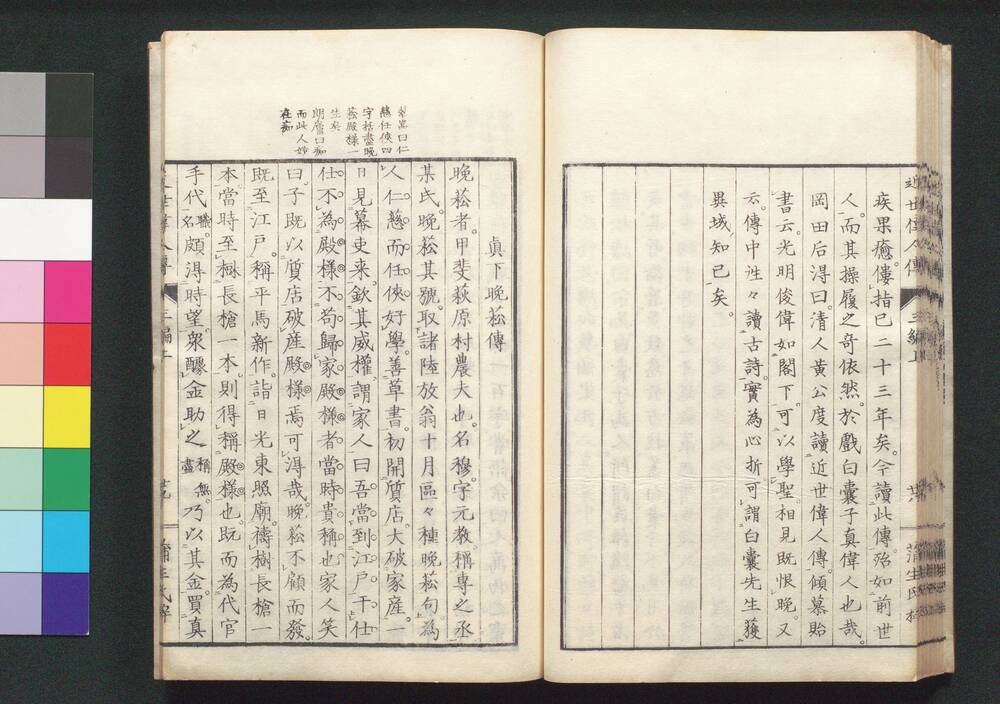 疾果癒。僂指已二十三年矣。今讀此傳。殆如前世
人。而其操履之奇依然。於戲白囊子真偉人也哉。
岡田后淂曰。清人黃公度讀近世偉人傳。傾慕貽
書云。光明俊偉如閣下。可以學聖。相見既恨晚。又
云。傳中往々讀古詩。實為心折。可謂白囊先生獲
異域知已矣。
貞下晚菘傳
晚菘者。甲斐萩原村農夫也。名穆。字元教。稱專之丞
某氏。晚菘其號。取諸陸放翁十月區々種晚菘句。為
人仁慈而任俠。好學。善草書。初開質店。大破家產。一
日見幕吏來。欽其威權。謂家人曰。吾當到江戶干仕
仕不為殿樣。不苟歸家。殿樣者當時貴稱也。家人笑
曰。子既以質店破產。殿樣焉可淂哉。晚菘不顧而發。
既至江戶。稱平馬新作。詣日光東照廟。禱樹長槍一
本。當時至樹長槍一本。則得稱殿樣也。既而為代官
手代職名。頗淂時望。眾醵金助之稱無盡。乃以其金買真
曰仁
慈任俠四
字括盡晚
菘殿樣一
生矣
朗廬曰痴
而此人妙
在痴
近世偉人傳
三編上
蒲生氏